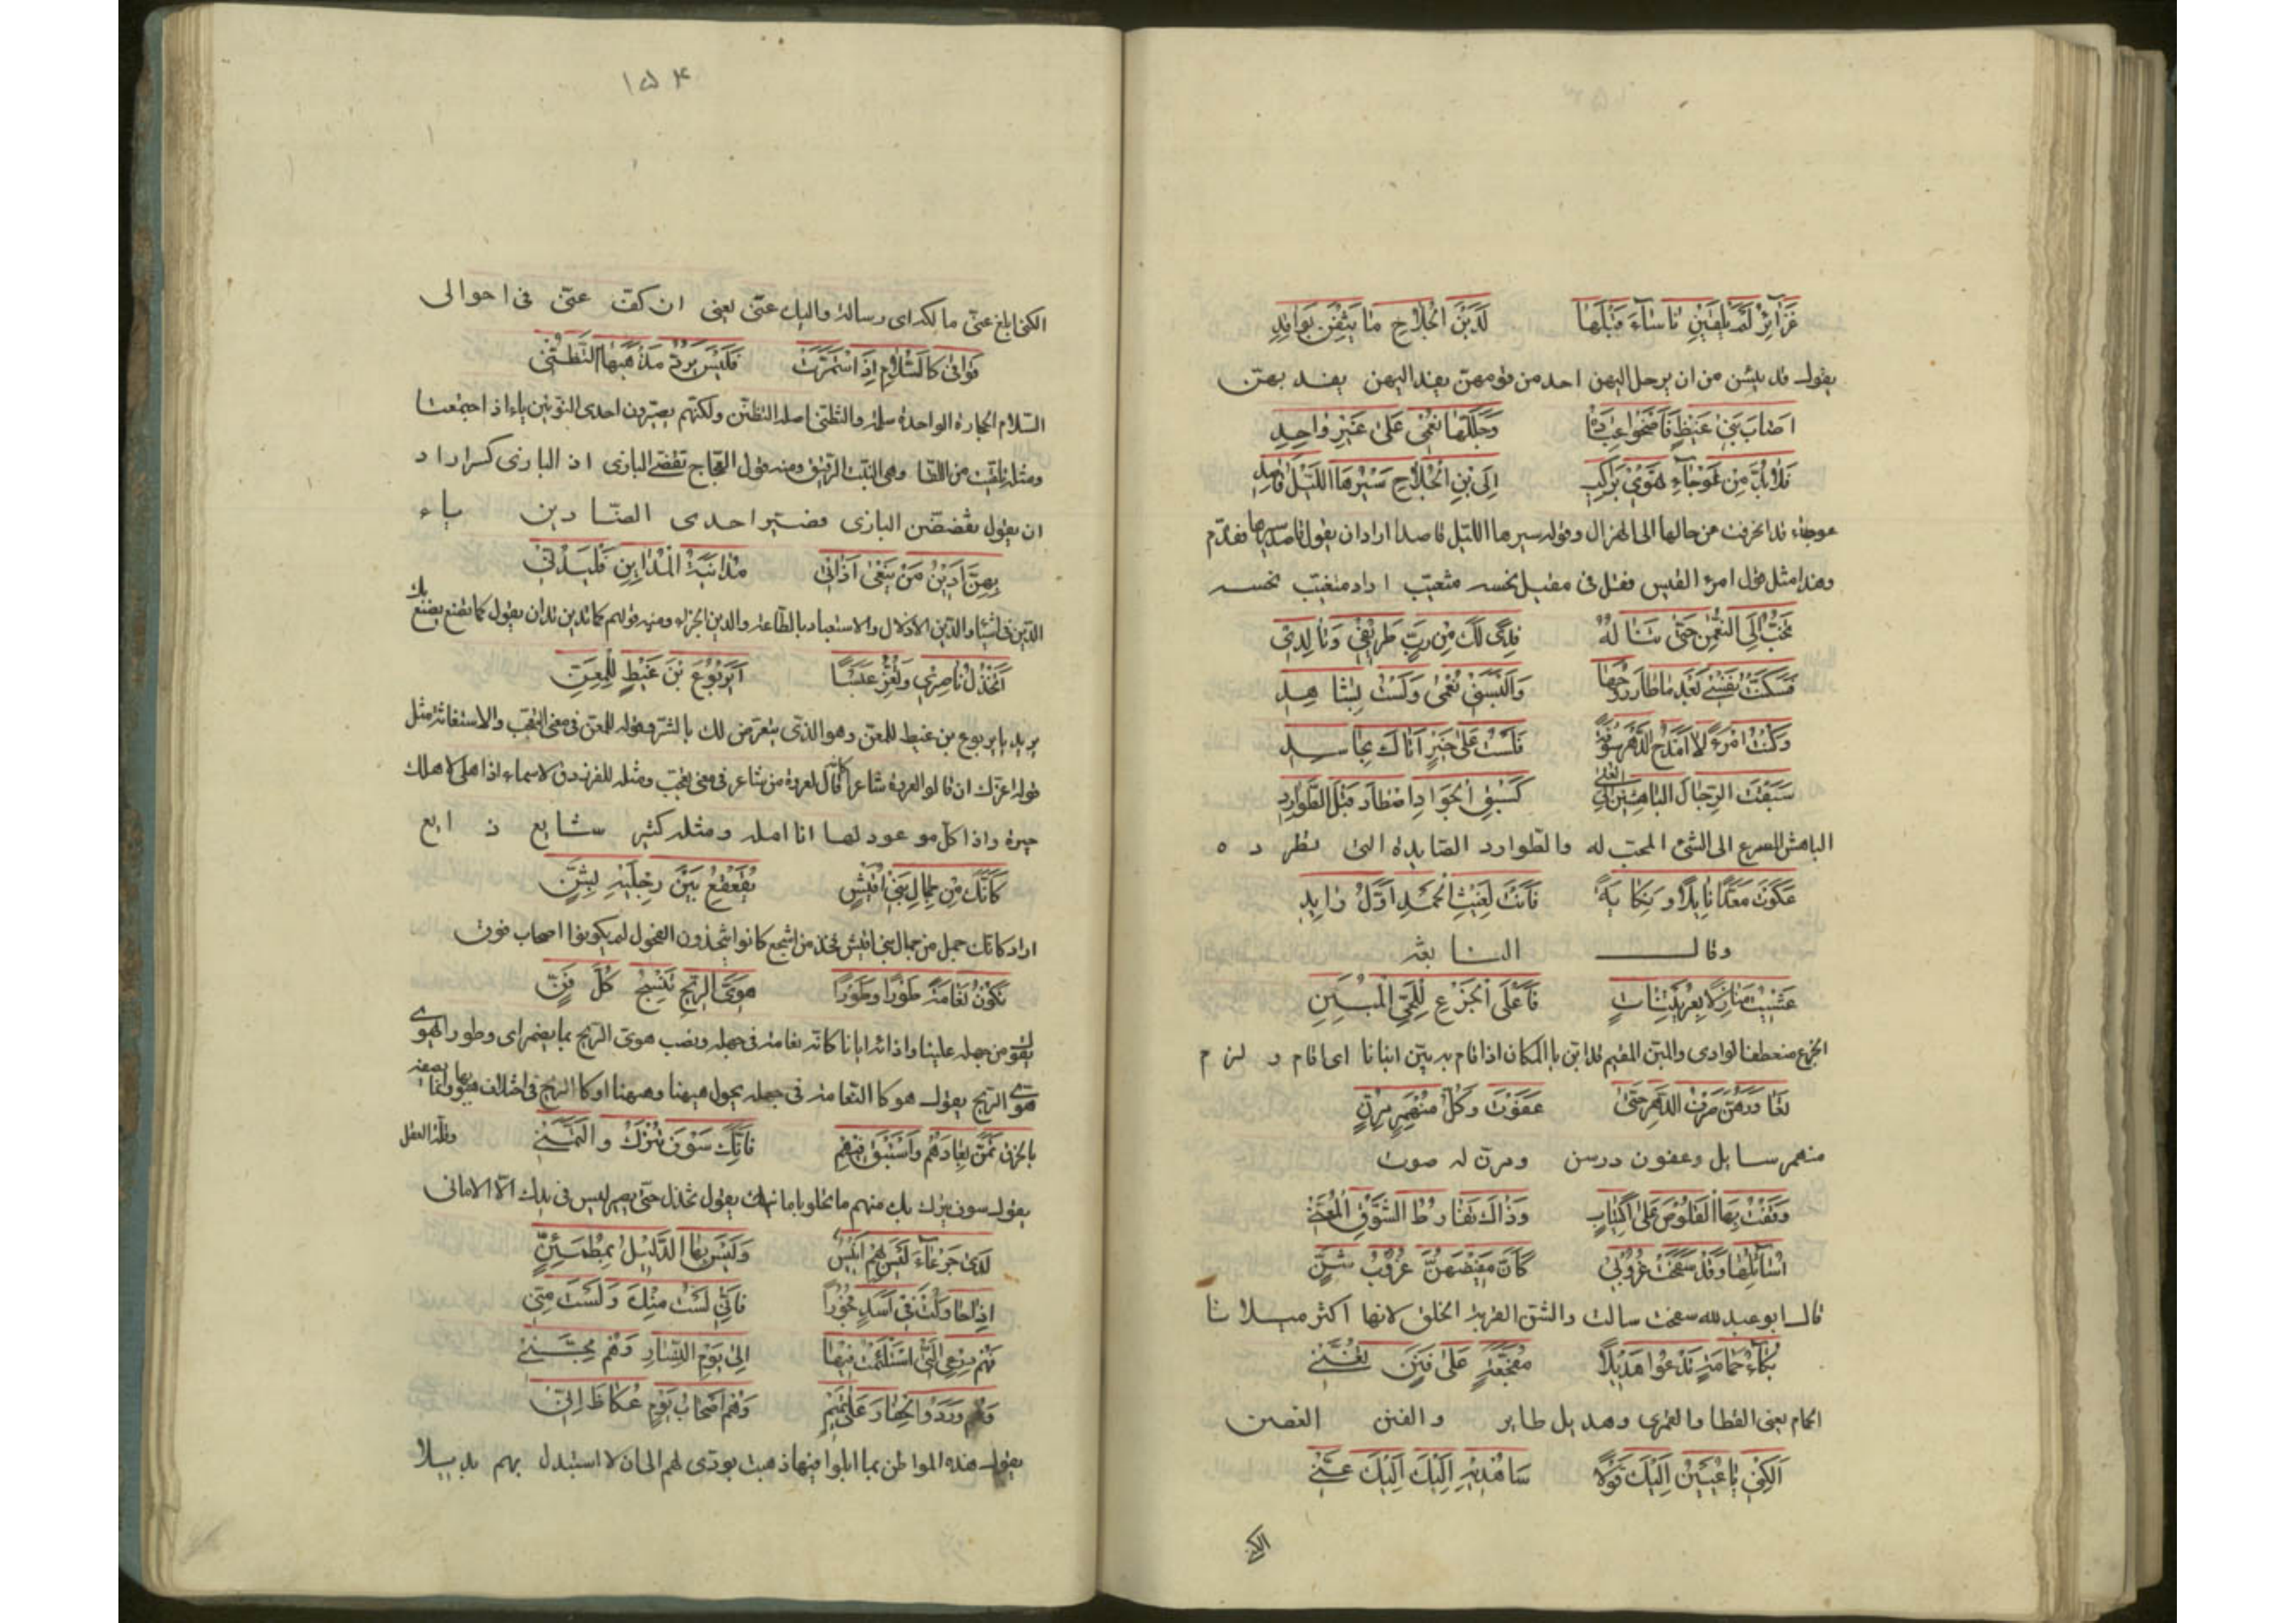 غَرَائِرُ لَمْ يَلْقَيْنَ بَأْسَاءَ قَبْلَهَا لَدَيْنَ الْجُلَاحِ مَا يَثِقْنَ بِوَافِدِ
يقول قد يئسن من ان يرحل اليهن احد من قومهن يفد اليهن يفد بهن
اَصَابَ بَنِي غَيْظٍ فَاَضْحَوْا عِبَادَهُ وَجَلَّلَهَا نُعْمَى عَلَى غَيْرِ وَاحِدِ
فَلَا بُدَّ مِنْ عَوْجَاءَ تَهْوِي بِرَاكِبٍ اِلَى بْنِ الْجُلَاحِ سَيْرُهَا اللَّيْلَ قَاصِدِ
عوجاء قد انحرفت من حالها الى الهزال وقوله سيرها الليل قاصد اراد ان يقول قاصد سيرها فقدّم
وهذا مثل قول امرء القيس فقل في مقيل نحسه متغيب اراد متغيب نحسه
تَخُبُّ اِلَى النُّعْمٰنِ حَتَّى تَنَالَهُ فِدًى لَكَ مِنْ رَبٍّ طَرِيفِي وَتَالِدِي
فَسَكَّنْتَ نَفْسِي بَعْدَ مَا طَارَ رُوحُهَا وَاَلْبَسْتَنِي نُعْمَى وَلَسْتُ بِشَاهِدِ
وَكُنْتُ امْرَءً لَا اَمْدَحُ الدَّهْرَ سُوقَةً فَلَسْتُ عَلَى خَيْرٍ اَتَاكَ بِحَاسِدِ
سَبَقْتَ الرِّجَالَ الْبَاهِشِينَ اِلَى الْعُلَى كَسَبْقِ الْجَوَادِ اصْطَادَ قَبْلَ الطَّوَارِدِ
الباهش المسرع الى الشئ المحب له والطوارد الصايدة التى تطرد ه
عَلَوْتَ مَعَدًّا نَايِلًا وَنِكَايَةً فَاَنْتَ لِغَيْثِ الْحَمْدِ اَوَّلُ رَايِدِ
وقال النابغة
غَشِيتُ مَنَازِلًا بِعُرَيْتِنَاتٍ فَاَعْلَى الْجِزْعِ لِلْحَيِّ الْمُبِنِّ
الجزع منعطف الوادى والمبن المقيم قد ابن بالمكان اذا قام به يبن ابنانا اى اقام ولزم
تَعَاوَرَهُنَّ صَرْفُ الدَّهْرِ حَتَّى عَفَوْنَ وَكُلُّ مُنْهَمِرٍ مُرِنٍّ
منهمر سايل وعفون درسن ومرن له صوت
وَقَفْتُ بِهَا الْقَلُوصَ عَلَى اكْتِئَابٍ وَذَاكَ تَفَارُطُ الشَّوْقِ الْمُعَنِّي
اُسَائِلُهَا وَقَدْ سَفَحَتْ غُرُوبِي كَاَنَّ مَفِيضَهُنَّ غُرُوبُ شَنِّ
قال ابو عبد لله سفحت سالت والشن القربة الخلق لانها اكثر سيلانا
بُكَاءَ حَمَامَةٍ تَدْعُوا هَدِيلًا مُفَجَّعَةٍ عَلَى فَنَنٍ تُغَنِّي
الحام يعنى القطا والقمرى وهديل طاير والفنن الغصن
اَلِكْنِي يَا عُيَيْنُ اِلَيْكَ قَوْلًا سَاَهْدِيهِ اِلَيْكَ اِلَيْكَ عَنِّي
الكنى
١٥٤
الكنى ابلغ عنى مالكه اى رسالة واليك عنى يعنى ان كف عنى فى احوالى
قَوَافِيَ كَالسَّلَامِ اِذَا اسْتَمَرَّتْ فَلَيْسَ يَرُدُّ مَذْهَبَهَا التَّظَنِّي
السلام الحجارة الواحدة سلمة والتظنى اصله التظنن ولكنهم يصيرون احدى النونين ياء اذا اجتمعتا
ومثله تلقيت من اللقا وهى النبت الرقيق ومنه قول العجاج تقضى البازى اذ البازى كسر اراد
ان يقول تقضض البازى فصير احدى الضادين ياء
بِهِنَّ اَدِينُ مَنْ يَبْغِي اَذَاتِي مُدَايَنَةَ الْمُدَايِنِ فَلْيَدِنِّي
الدين فى اشياء الدين الاذلال والاستعباد بالطاعة والدين الجزاء ومنه قولهم كما تدين تدان يقول كما تصنع يصنع بك
اَتَخْذُلُ نَاصِرِي وَتُعِزُّ عَبْسًا اَيَرْبُوعَ بْنَ غَيْظٍ لِلْمِعَنِّ
يريد يا يربوع بن غيظ للمعن وهو الذى يتعرض لك بالشر وقوله للمعن فى معنى التعجب والاستغاثة مثل
حيرة واذا كل موعود لها انا امله ومثله كثير شايع ذايع
كَاَنَّكَ مِنْ جِمَالِ بَنِي اُقَيْشٍ يُقَعْقَعُ بَيْنَ رِجْلَيْهِ بِشَنِّ
اراد كانك جمل من جمال بنى اقيش فخذ من اشجع كانوا يتخذون الفحول لم يكونوا اصحاب فوق
تَكُونُ نَعَامَةً طَوْرًا وَطَوْرًا هَوِيَّ الرِّيحِ تَنْسِجُ كُلَّ فَنِّ
هوى الريح يقول هو كالنعامة فى جهله يحول هيهنا وهيهنا او كالريح فى اختلاف هبوبها
تَمَنَّ بِعَادَهُمْ وَاسْتَبْقِ مِنْهُمْ فَاِنَّكَ سَوْفَ تُتْرَكُ وَالتَّمَنِّي
يقول سوف يترك بك منهم ما تخلو بامانيك يقول تخذل حتى يصير ليس فى يدك الا الامانى
لَدَى جَرْعَاءَ لَيْسَ بِهَا اَنِيسٌ وَلَيْسَ بِهَا الدَّلِيلُ بِمُطْمَئِنِّ
اِذَا حَاوَلْتَ فِي اَسَدٍ فُجُورًا فَاِنِّي لَسْتُ مِنْكَ وَلَسْتَ مِنِّي
فَهُمْ دِرْعِي الَّتِي اسْتَلْأَمْتُ فِيهَا اِلَى يَوْمِ النِّسَارِ وَهُمْ مِجَنِّي
وَهُمْ وَرَدُوا الْجِفَارَ عَلَى تَمِيمٍ وَهُمْ اَصْحَابُ يَوْمِ عُكَاظَ اِنِّي
يقول هذه المواطن بما ابلوا فيها ذهبت بودى لهم الى ان لا استبدل بهم بديلا